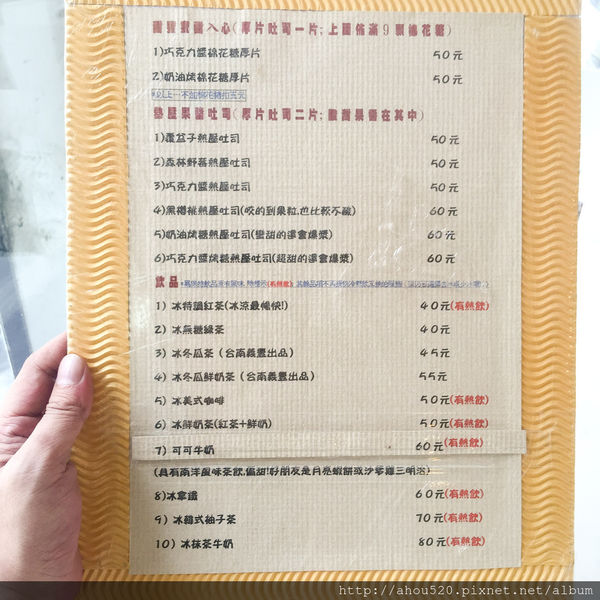 圈寶獻圈入心(厚片吐司一片;上面佈滿9顆棉花糖)
1)巧克力醬棉花糖厚片 50元
2)奶油烤棉花糖厚片 50元
*以上…不加棉花糖扣五元
熱壓果醬吐司(厚片吐司二片;融甜果醬在其中)
1)覆盆子熱壓吐司 50元
2)森林野莓熱壓吐司 50元
3)巧克力醬熱壓吐司 50元
4)黑櫻桃熱壓吐司(咬的到果粒,也比較不酸) 60元
5)奶油烤糖熱壓吐司(蜜甜的還會爆漿) 60元
6)巧克力醬烤糖熱壓吐司(超甜的還會爆漿) 60元
飲品
1) 冰特調紅茶(冰涼最暢快!) 40元(有熱飲)
2) 冰無糖綠茶 40元
3) 冰冬瓜茶(台南義豐出品) 45元
4) 冰冬瓜鮮奶茶(台南義豐出品) 55元
5) 冰美式咖啡 50元(有熱飲)
6) 冰鮮奶茶(紅茶+鮮奶) 50元(有熱飲)
7) 可可牛奶 60元(有熱飲)
(具有南洋風味茶飲,偏甜!好朋友是月亮蝦餅或沙嗲雞三明治)
8)冰拿鐵 60元(有熱飲)
9) 冰韓式柚子茶 70元(有熱飲)
10) 冰抹茶牛奶 80元(有熱飲)
http://ahou520.pixnet.net/album